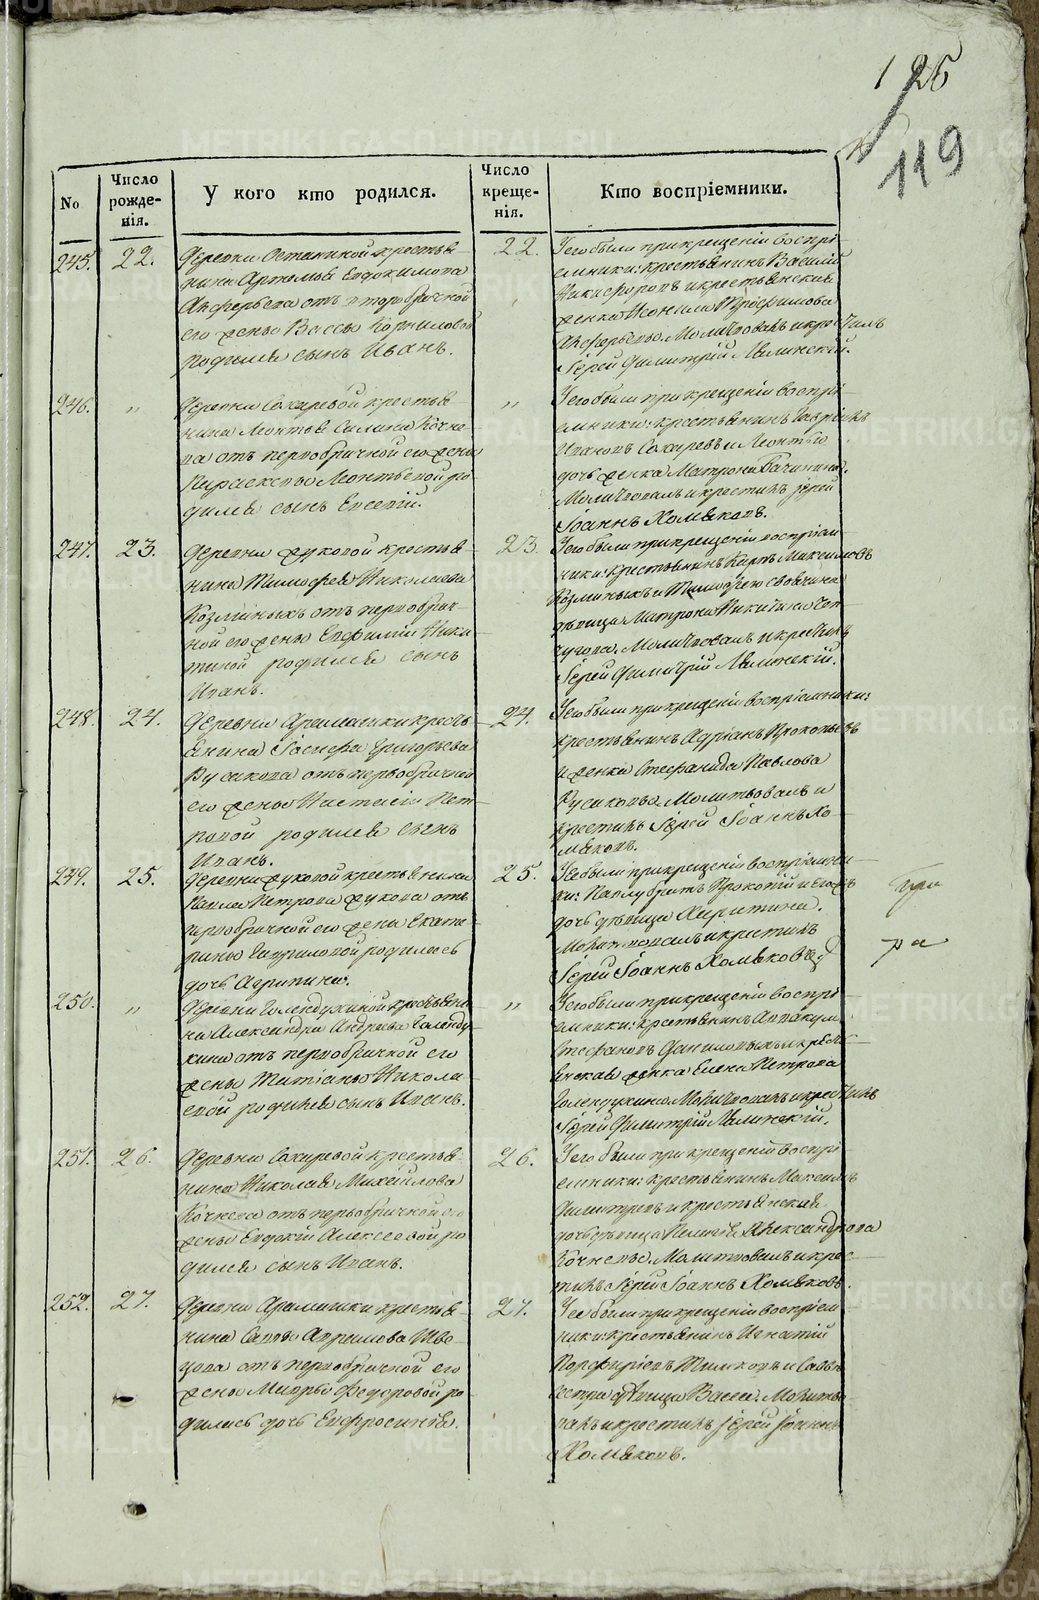 125
119
No
Число рожде-нія.
У кого кто родился.
Число креще-нія.
Кто воспріемники.
245.
22.
Деревни Останиной крестья-
нина Артемья Евдокимова
Анферьева отъ второбрачной
его жены Вассы Корниловой
родился сынъ Иванъ.
22.
У его были при крещеніи воспрі-
емники: крестьянинъ Василій
Никифоровъ и крестьянская
женка Неонила Трофимова
Анферьева. Молитвовалъ и крестилъ
Іерей Димитрій Малинскій.
246.
"
Деревни Сохаревой крестья-
нина Леонтья Силина Кочне-
ва отъ первобрачной его жены
Параскевы Леонтьевой ро-
дился сынъ Евсевій.
"
У его были при крещеніи воспрі-
емники: крестьянинъ Гавріилъ
Ивановъ Сохаревъ и Леонтья
дочь женка Матрона
Молитвовалъ и крестилъ Іерей
Іоаннъ Хомяковъ.
247.
23.
Деревни Жуковой крестья-
нина Тимофея Николаева
Козминыхъ отъ первобрач-
ной его жены Евфиміи Ники-
тиной родился сынъ
Иванъ.
23.
У его были при крещеніи воспріем-
ники: крестьянинъ Карпъ Максимовъ
Козминыхъ и Тимофею свояченя
дѣвица Матрона Никитина
Молитвовалъ и крестилъ
Іерей Димитрій Малинскій.
248.
24.
Деревни Арамашки кресть-
янина Іосифа Григорьева
Русакова отъ первобрачной
его жены Настасіи Пет-
ровой родился сынъ
Иванъ.
24.
У его были при крещеніи воспріемники:
крестьянинъ Адріанъ Прокопьевъ
и женка Стефанида Павлова
Русакова. Молитвовалъ и
крестилъ Іерей Іоаннъ Хо-
мяковъ.
249.
25.
Деревни Жуковой крестьянина
Павла Петрова Жукова отъ
первобрачной его жены Екате-
рины Гавриловой родилась
дочь Агрипина.
25.
У ее были при крещеніи воспріемни-
ки: Павлу братъ Прокопій и его жъ
дочь дѣвица Харитина.
Молитвовалъ и крестилъ
Іерей Іоаннъ Хомяковъ.
250.
"
Деревни Голендухиной крестьяни-
на Александра Андреева Голенду-
хина отъ первобрачной его
жены Татіаны Никола-
евой родился сынъ Иванъ.
"
У его были при крещеніи воспрі-
емники: крестьянинъ Аввакумъ
Стефановъ Даниловыхъ и кресть-
янская женка Елена Петрова
Голендухина. Молитвовалъ и крестилъ
Іерей Димитрій Малинскій.
251.
26.
Деревни Сохаревой крестья-
нина Николая Михайлова
Кочнева отъ первобрачной его
жены Евдокіи Алексеевой ро-
дился сынъ Иванъ.
26.
У его были при крещеніи воспрі-
емники: крестьянинъ Максимъ
Димитріевъ и крестьянская
дочь дѣвица Пелагея Александрова
Кочнева. Молитвовалъ и крес-
тилъ Іерей Іоаннъ Хомяковъ.
252.
27.
Деревни Арамашки крестья-
нина Саввы Абрамова Шве-
цова отъ первобрачной его
жены Мавры Федоровой ро-
дилась дочь Евфросинія.
27.
У ее были при крещеніи воспріем-
ники: крестьянинъ Игнатій
Порфиріевъ Тимковъ и Саввы
сестра дѣвица Васса. Молитво-
валъ и крестилъ Іерей Іоаннъ
Хомяковъ.